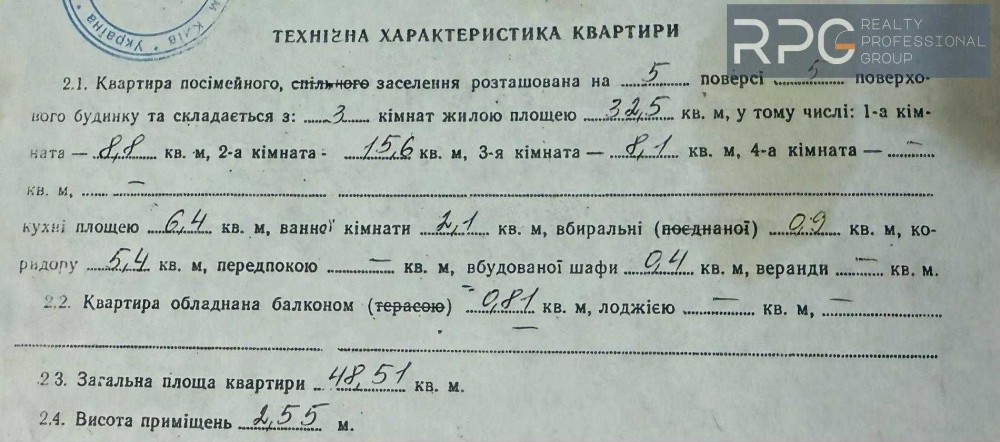 Київ * Україна *
RPG REALTY PROFESSIONAL GROUP
ТЕХНІЧНА ХАРАКТЕРИСТИКА КВАРТИРИ
2.1. Квартира посімейного, спільного заселення розташована на 5 поверсі 5 поверхо-
вого будинку та складається з: 3 кімнат жилою площею 32,5 кв. м, у тому числі: 1-а кім-
ната — 8,8 кв. м, 2-а кімната - 15,6 кв. м, 3-я кімната — 8,1 кв. м, 4-а кімната — —
кв. м, —
кухні площею 6,4 кв. м, ванної кімнати 2,1 кв. м, вбиральні (поєднаної) 0,9 кв. м, ко-
ридору 5,4 кв. м, передпокою — кв. м, вбудованої шафи 0,4 кв. м, веранди — кв. м.
2.2. Квартира обладнана балконом (терасою) 0,81 кв. м, лоджією — кв. м, —
—
2 3. Загальна площа квартири 48,51 кв. м.
2.4. Висота приміщень 2,55 м.